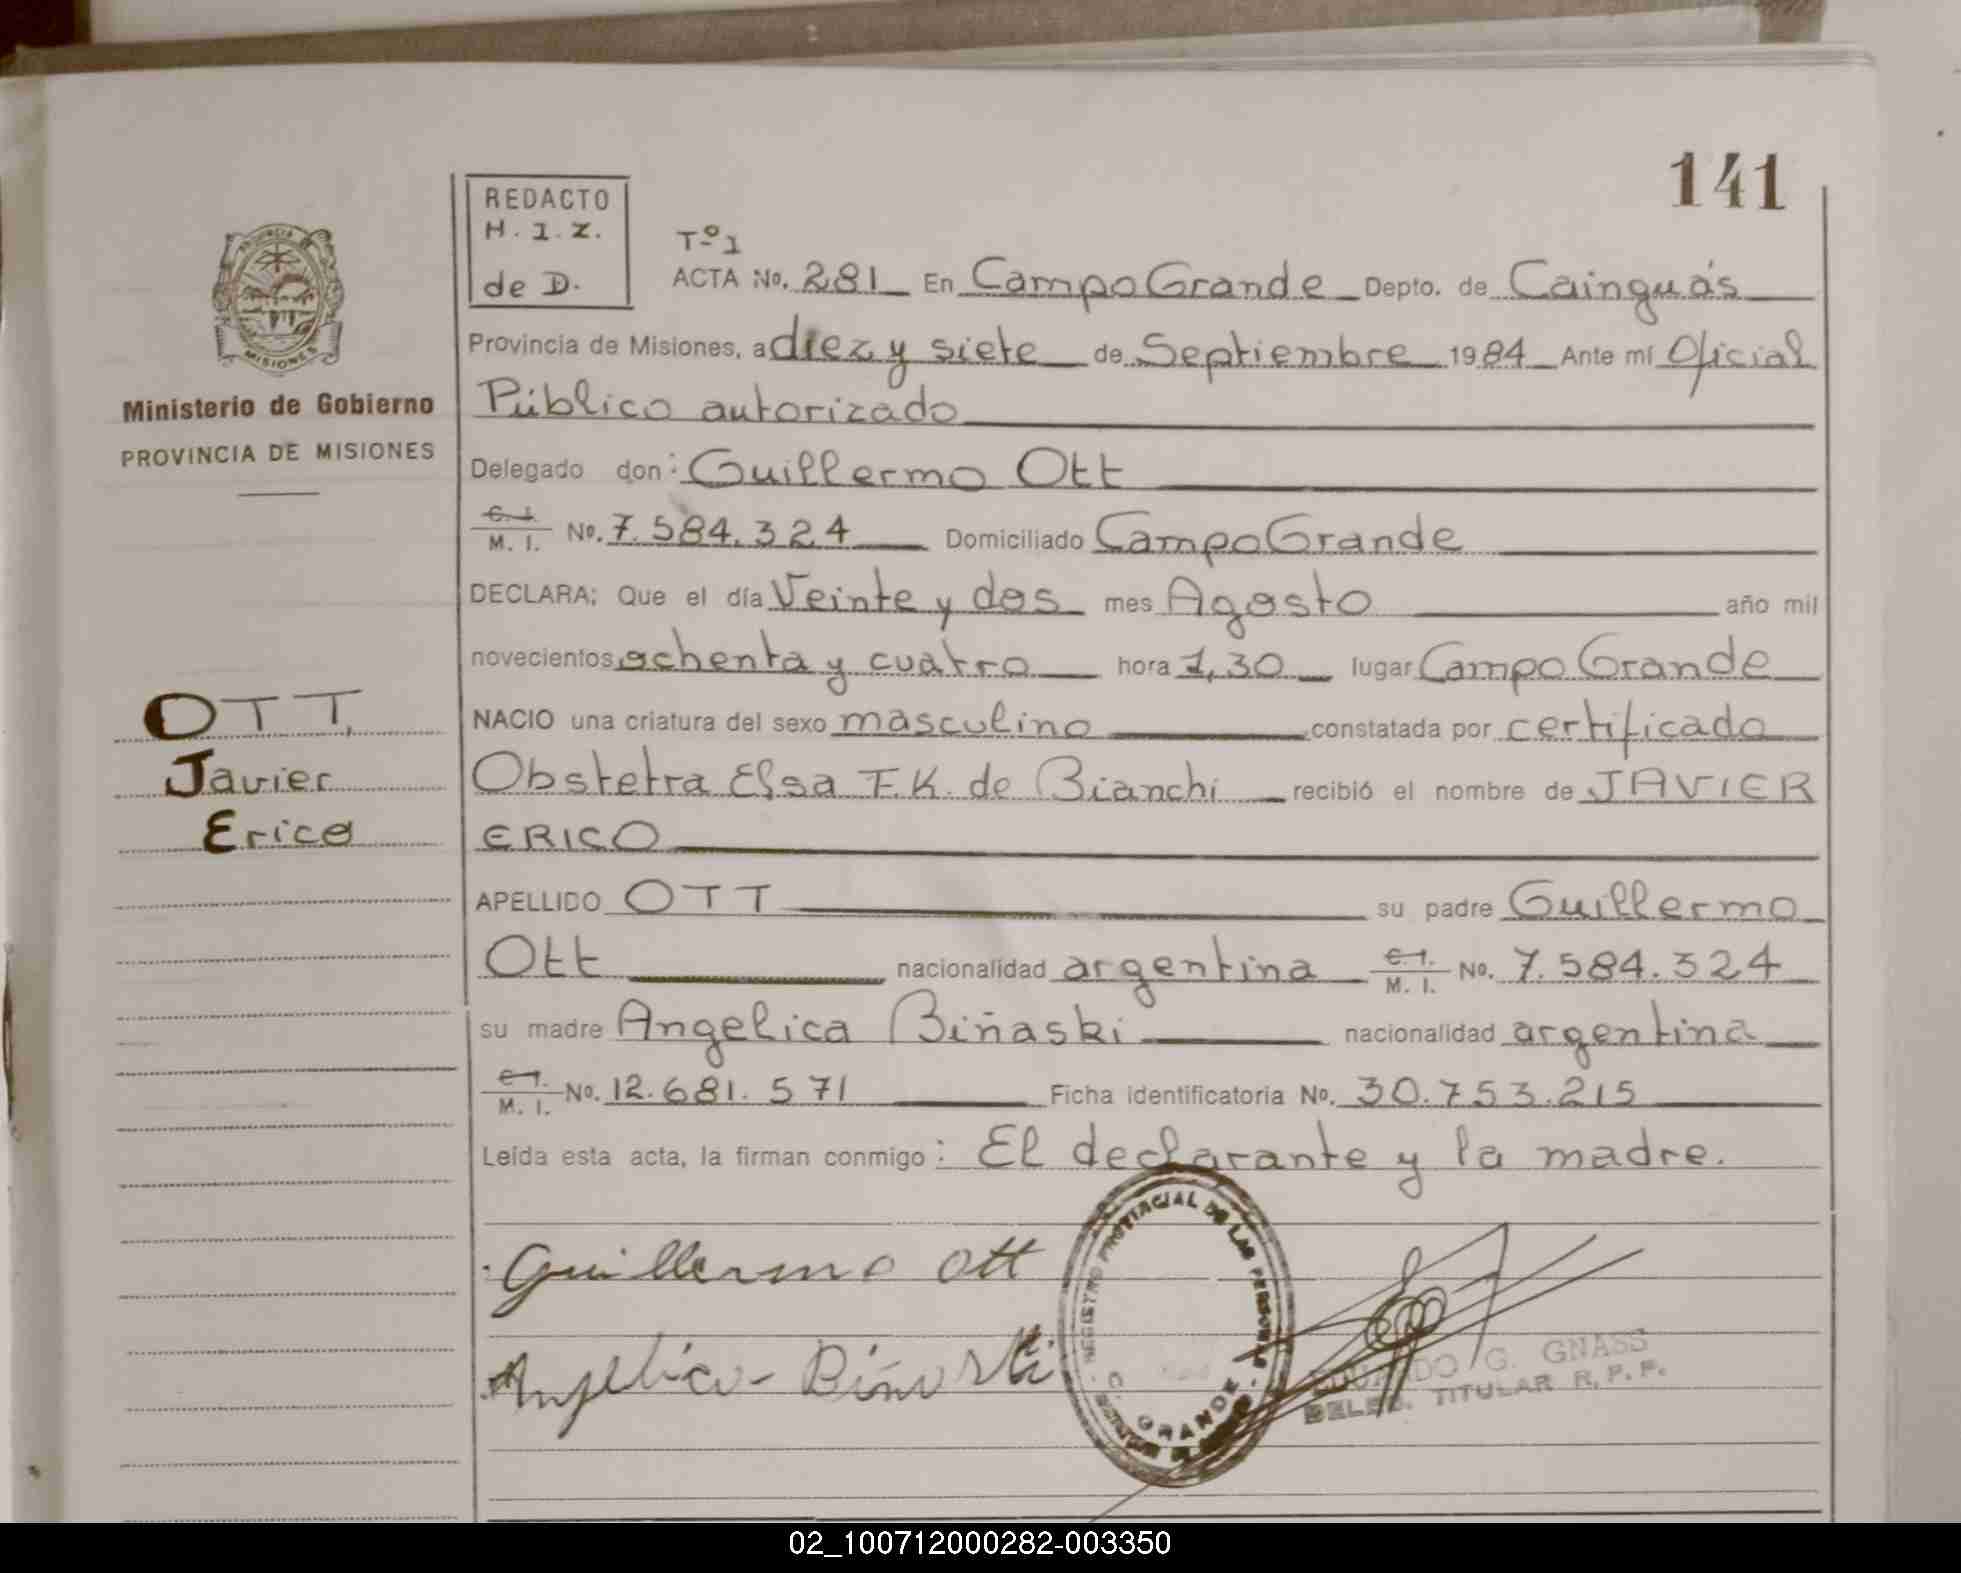 141
REDACTO
H. I. Z.
de D.
Tº 1
ACTA No. 281 En Campo Grande Depto. de Cainguás
Provincia de Misiones, a diez y siete de Septiembre 1984 Ante mí Oficial
Público autorizado
Delegado don: Guillermo Ott
C. I.
M. I. No. 7.584.324 Domiciliado Campo Grande
DECLARA: Que el día Veinte y dos mes Agosto año mil
novecientos ochenta y cuatro hora 1,30 lugar Campo Grande
NACIO una criatura del sexo masculino constatada por certificado
Obstetra Elsa F. K. de Bianchi recibió el nombre de JAVIER
ERICO
APELLIDO OTT su padre Guillermo
Ott nacionalidad argentina C. I. M. I. No. 7.584.324
su madre Angelica Biñaski nacionalidad argentina
C. I.
M. I. No. 12.681.571 Ficha identificatoria No. 30.753.215
Leída esta acta, la firman conmigo: El declarante y la madre.
Guillermo Ott
Angelica Biñaski
REGISTRO PROVINCIAL DE LAS PERSONAS
GRANDE
EDUARDO G. GNASS
DELEG. TITULAR R. P. P.
MISIONES
Ministerio de Gobierno
PROVINCIA DE MISIONES
OTT,
Javier
Erico
02_100712000282-003350